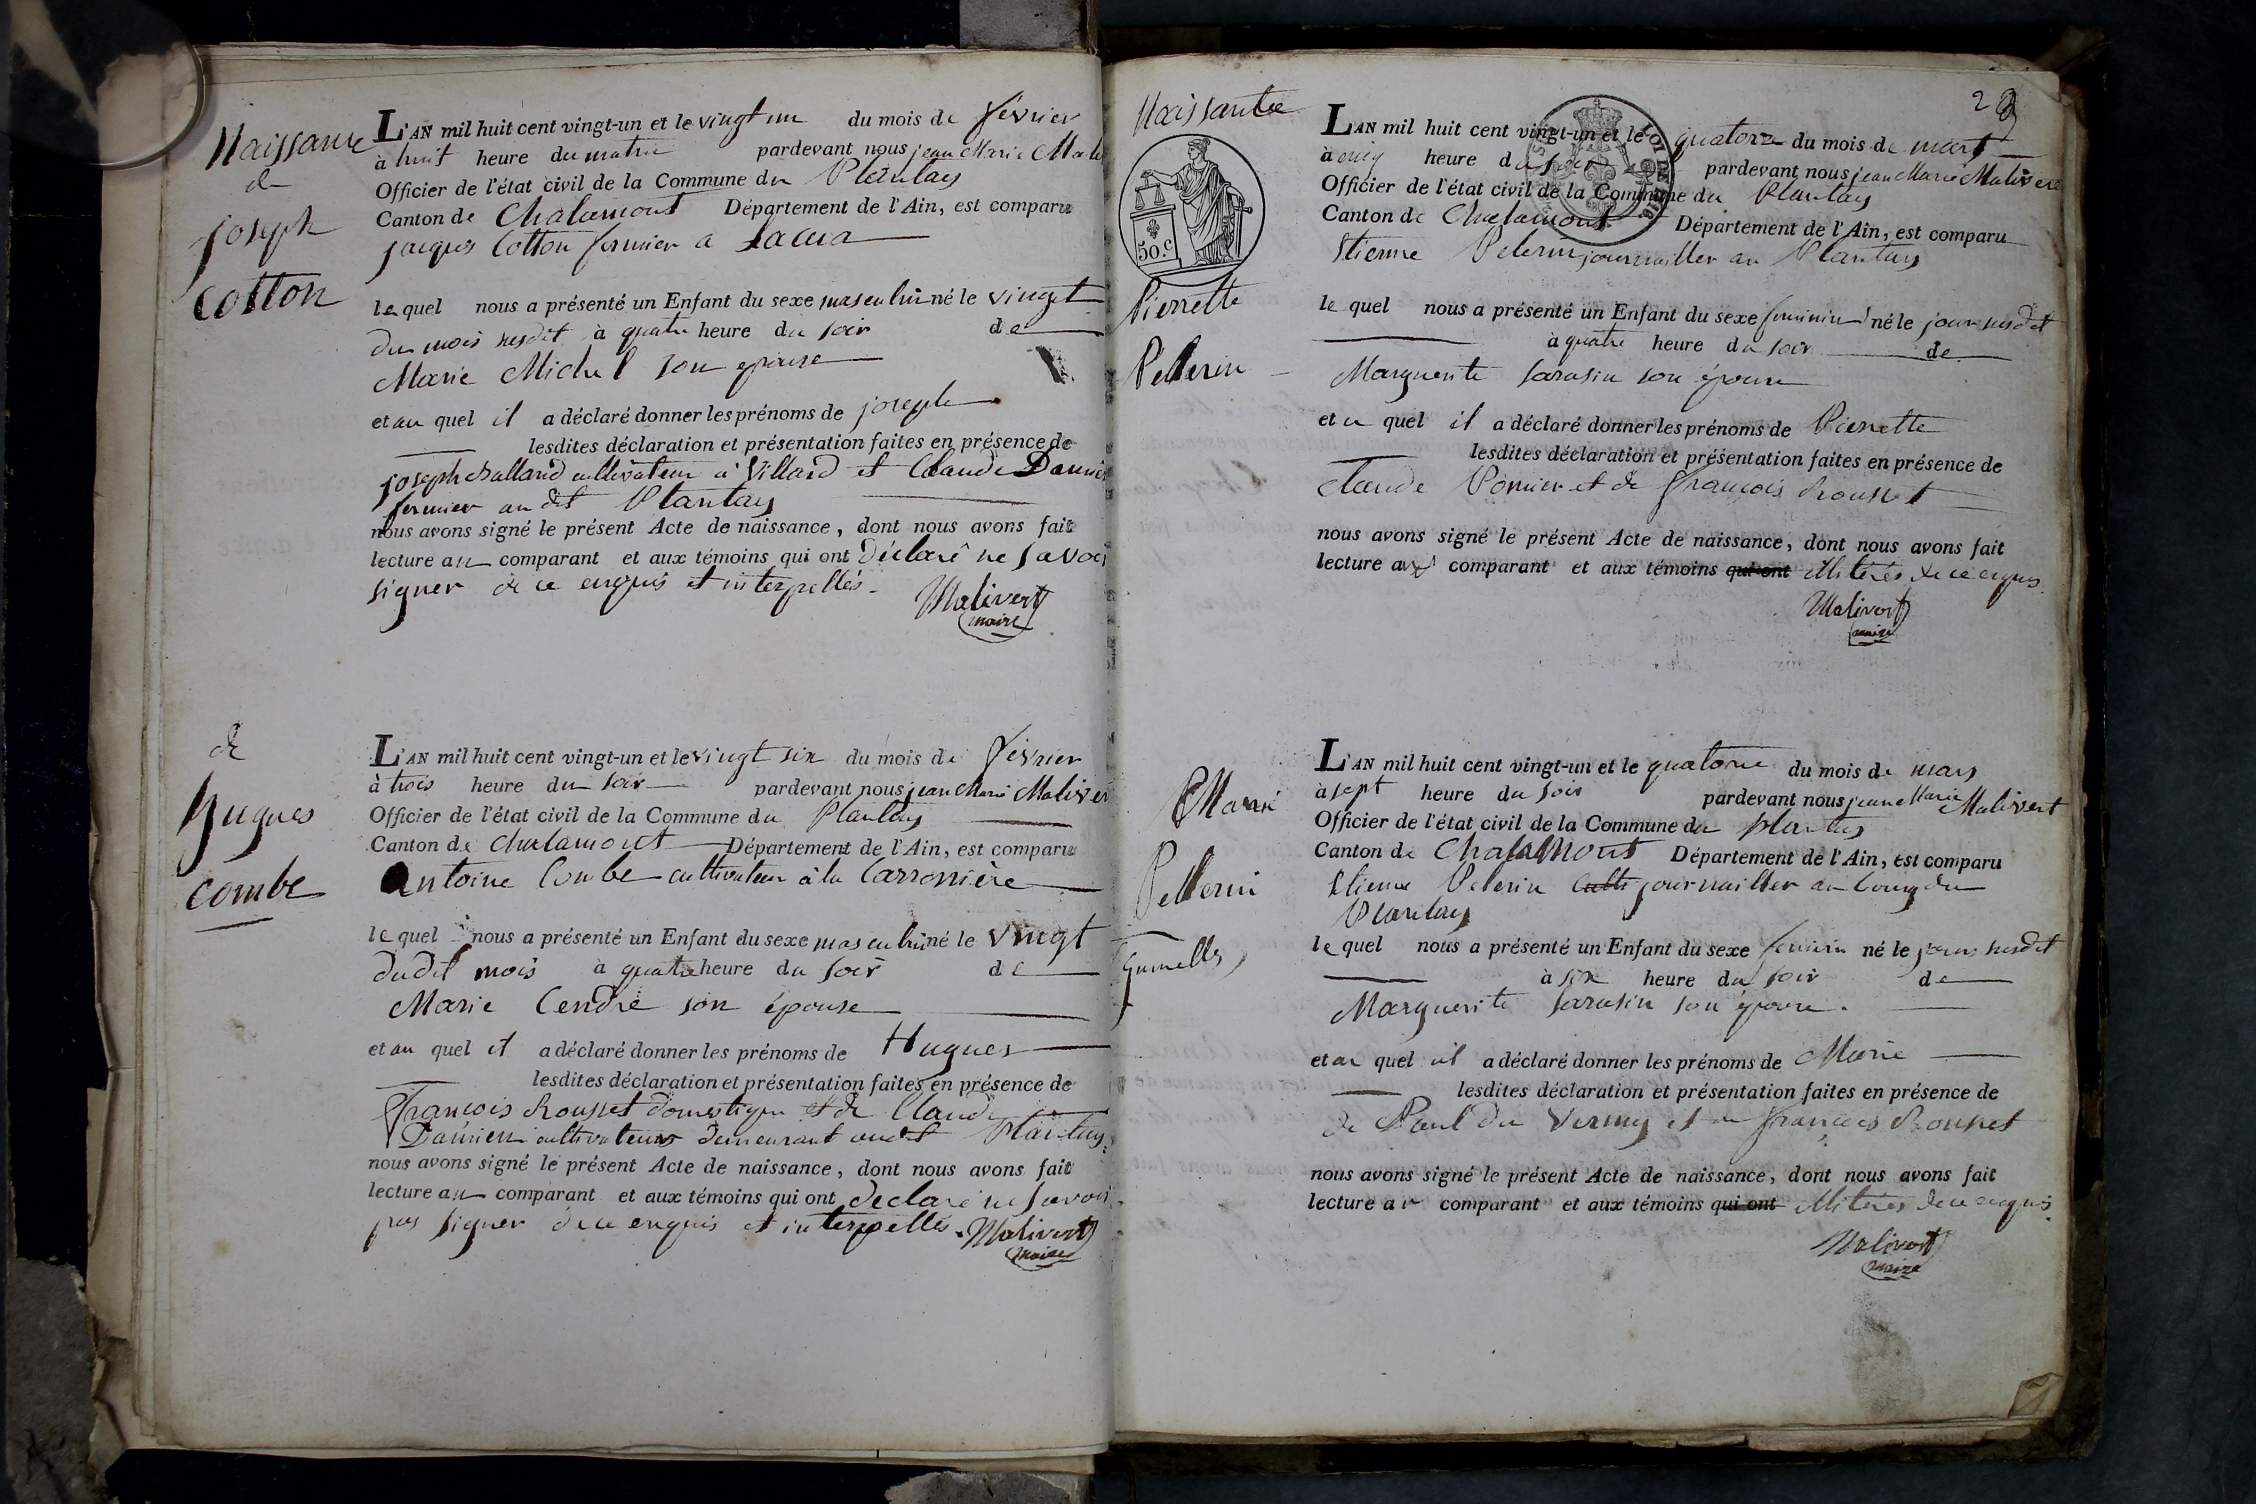 Naissance
de
joseph
cotton
L'AN mil huit cent vingt-un et le vingt un du mois de février
à huit heure du matin pardevant nous jean Marie Mali
Officier de l'état civil de la Commune du Plantay
Canton de Chalamont Département de l'Ain, est comparu
jacques Cotton fermier a
le quel nous a présenté un Enfant du sexe masculin né le vingt
du mois susdit à quatre heure du soir de
Marie Michel son epouse
et au quel il a déclaré donner les prénoms de joseph
lesdites déclaration et présentation faites en présence de
joseph challand cultivateur à Villard et Claude Damien
fermier au dit Plantay
nous avons signé le présent Acte de naissance, dont nous avons fait
lecture au comparant et aux témoins qui ont déclaré ne savoi
signer de ce enquis et interpellés. Malivert
maire
de
hugues
combe
L'AN mil huit cent vingt-un et le vingt six du mois de février
à trois heure du soir pardevant nous jean Marie Maliver
Officier de l'état civil de la Commune du Plantay
Canton de chalamont Département de l'Ain, est comparu
Antoine Combe cultivateur à la Carronnière
le quel nous a présenté un Enfant du sexe masculin né le vingt
dudit mois à quatre heure du soir de
Marie Cendre son épouse
et au quel il a déclaré donner les prénoms de Hugues
lesdites déclaration et présentation faites en présence de
François Rousset domestique et de Claude
Damien cultivateurs demeurant audit Plantay
nous avons signé le présent Acte de naissance, dont nous avons fait
lecture au comparant et aux témoins qui ont declaré ne savoir
pas signer de ce enquis et interpellés. Malivert
maire
2
Naissance
50.c
Pierrette
Pellerin
L'AN mil huit cent vingt-un et le quatorze du mois de mars
à cinq heure du soir pardevant nous jean Marie Malivert
Officier de l'état civil de la Commune du Plantay
Canton de Chalamont Département de l'Ain, est comparu
Etienne Pelerin journailler au Plantay
le quel nous a présenté un Enfant du sexe feminin né le jour susdit
à quatre heure du soir de
Marguerite Sarasin son épouse
et a quel il a déclaré donner les prénoms de Pierrette
lesdites déclaration et présentation faites en présence de
Claude Pomier et de françois Rousset
nous avons signé le présent Acte de naissance, dont nous avons fait
lecture au comparant et aux témoins qui ont illiterés de ce enquis
Malivert
maire
Marie
Pellerin
Gumelles
L'AN mil huit cent vingt-un et le quatorze du mois de mars
à sept heure du soir pardevant nous jean Marie Malivert
Officier de l'état civil de la Commune du plantay
Canton de Chalamont Département de l'Ain, est comparu
Etienne Pelerin culti journailler au bourg du
Plantay
le quel nous a présenté un Enfant du sexe feminin né le jour susdit
à six heure du soir de
Marguerite Sarasin son épouse.
et au quel il a déclaré donner les prénoms de Marie
lesdites déclaration et présentation faites en présence de
de Paul du Vernay et de françois Rousset
nous avons signé le présent Acte de naissance, dont nous avons fait
lecture au comparant et aux témoins qui ont illiterés de ce enquis
Malivert
maire